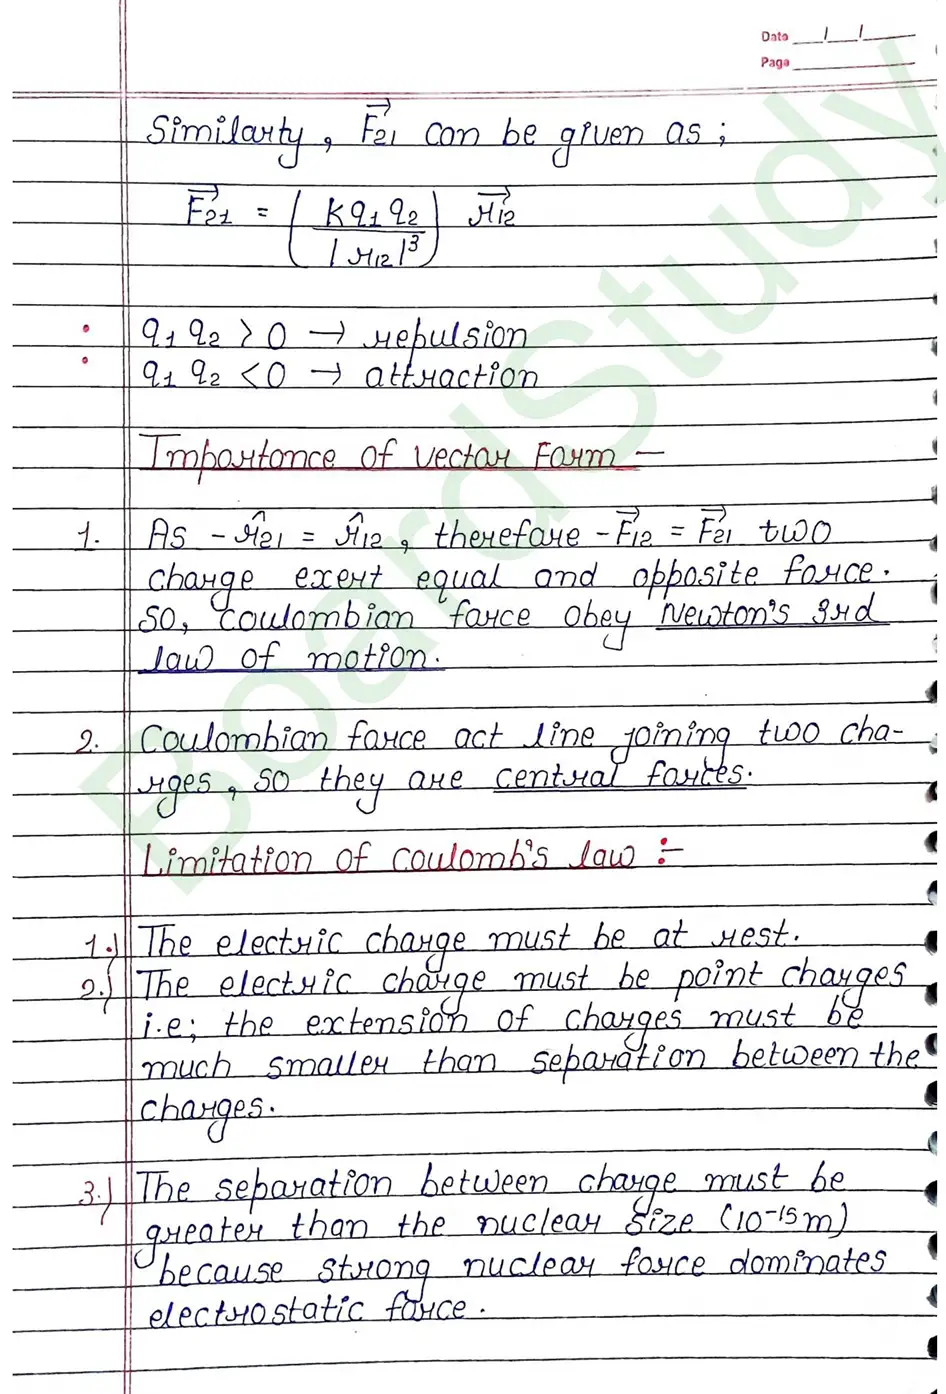 Date __/__/__
Page
Similarty, F⃗21 can be given as;
F⃗21 = (Kq1q2 / |r12|³) r⃗12
• q1 q2 > 0 → repulsion
• q1 q2 < 0 → attraction
Importance of vector Form -
1. As - r̂21 = r̂12, therefore -F⃗12 = F⃗21 two
charge exert equal and opposite force.
So, coulombian force obey Newton's 3rd
law of motion.
2. Coulombian force act line joining two cha-
rges, so they are central forces.
Limitation of coulomb's law :-
1.) The electric charge must be at rest.
2.) The electric charge must be point charges
i.e; the extension of charges must be
much smaller than separation between the
charges.
3.) The separation between charge must be
greater than the nuclear size (10⁻¹⁵m)
because strong nuclear force dominates
electrostatic force.
BoardStudy